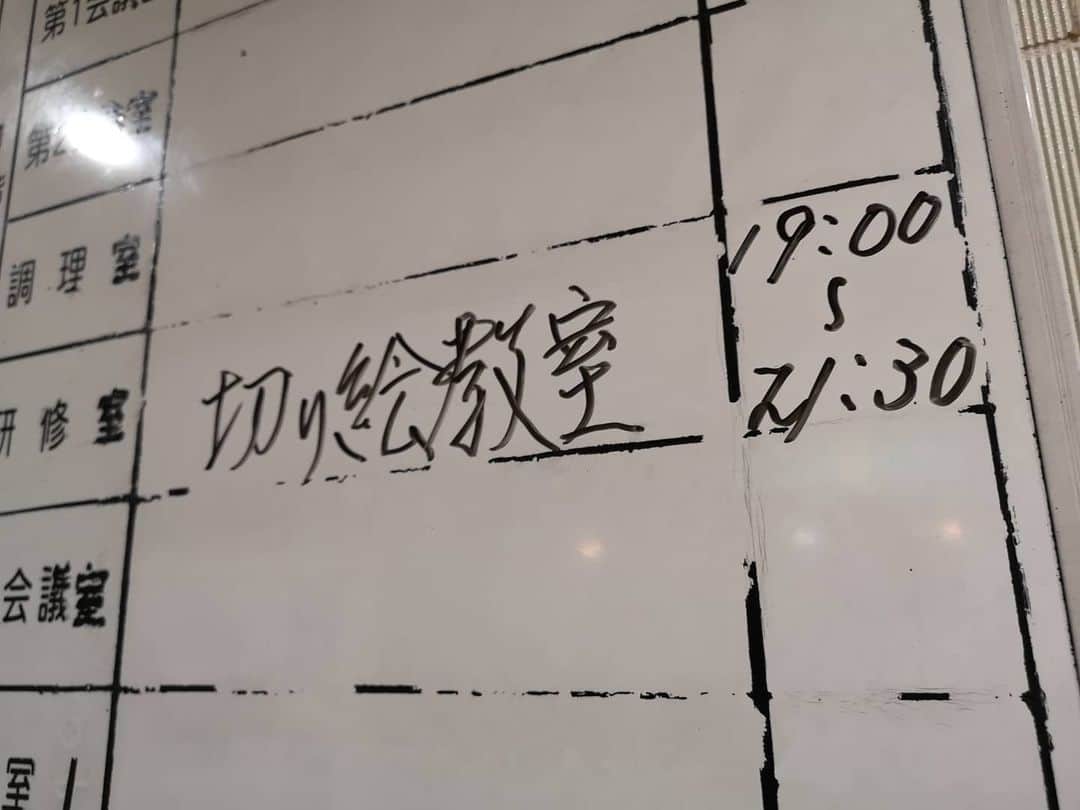 第1会議
第2会議室
調理室
研修室
切り絵教室
19:00
〜
21:30
会議室
室